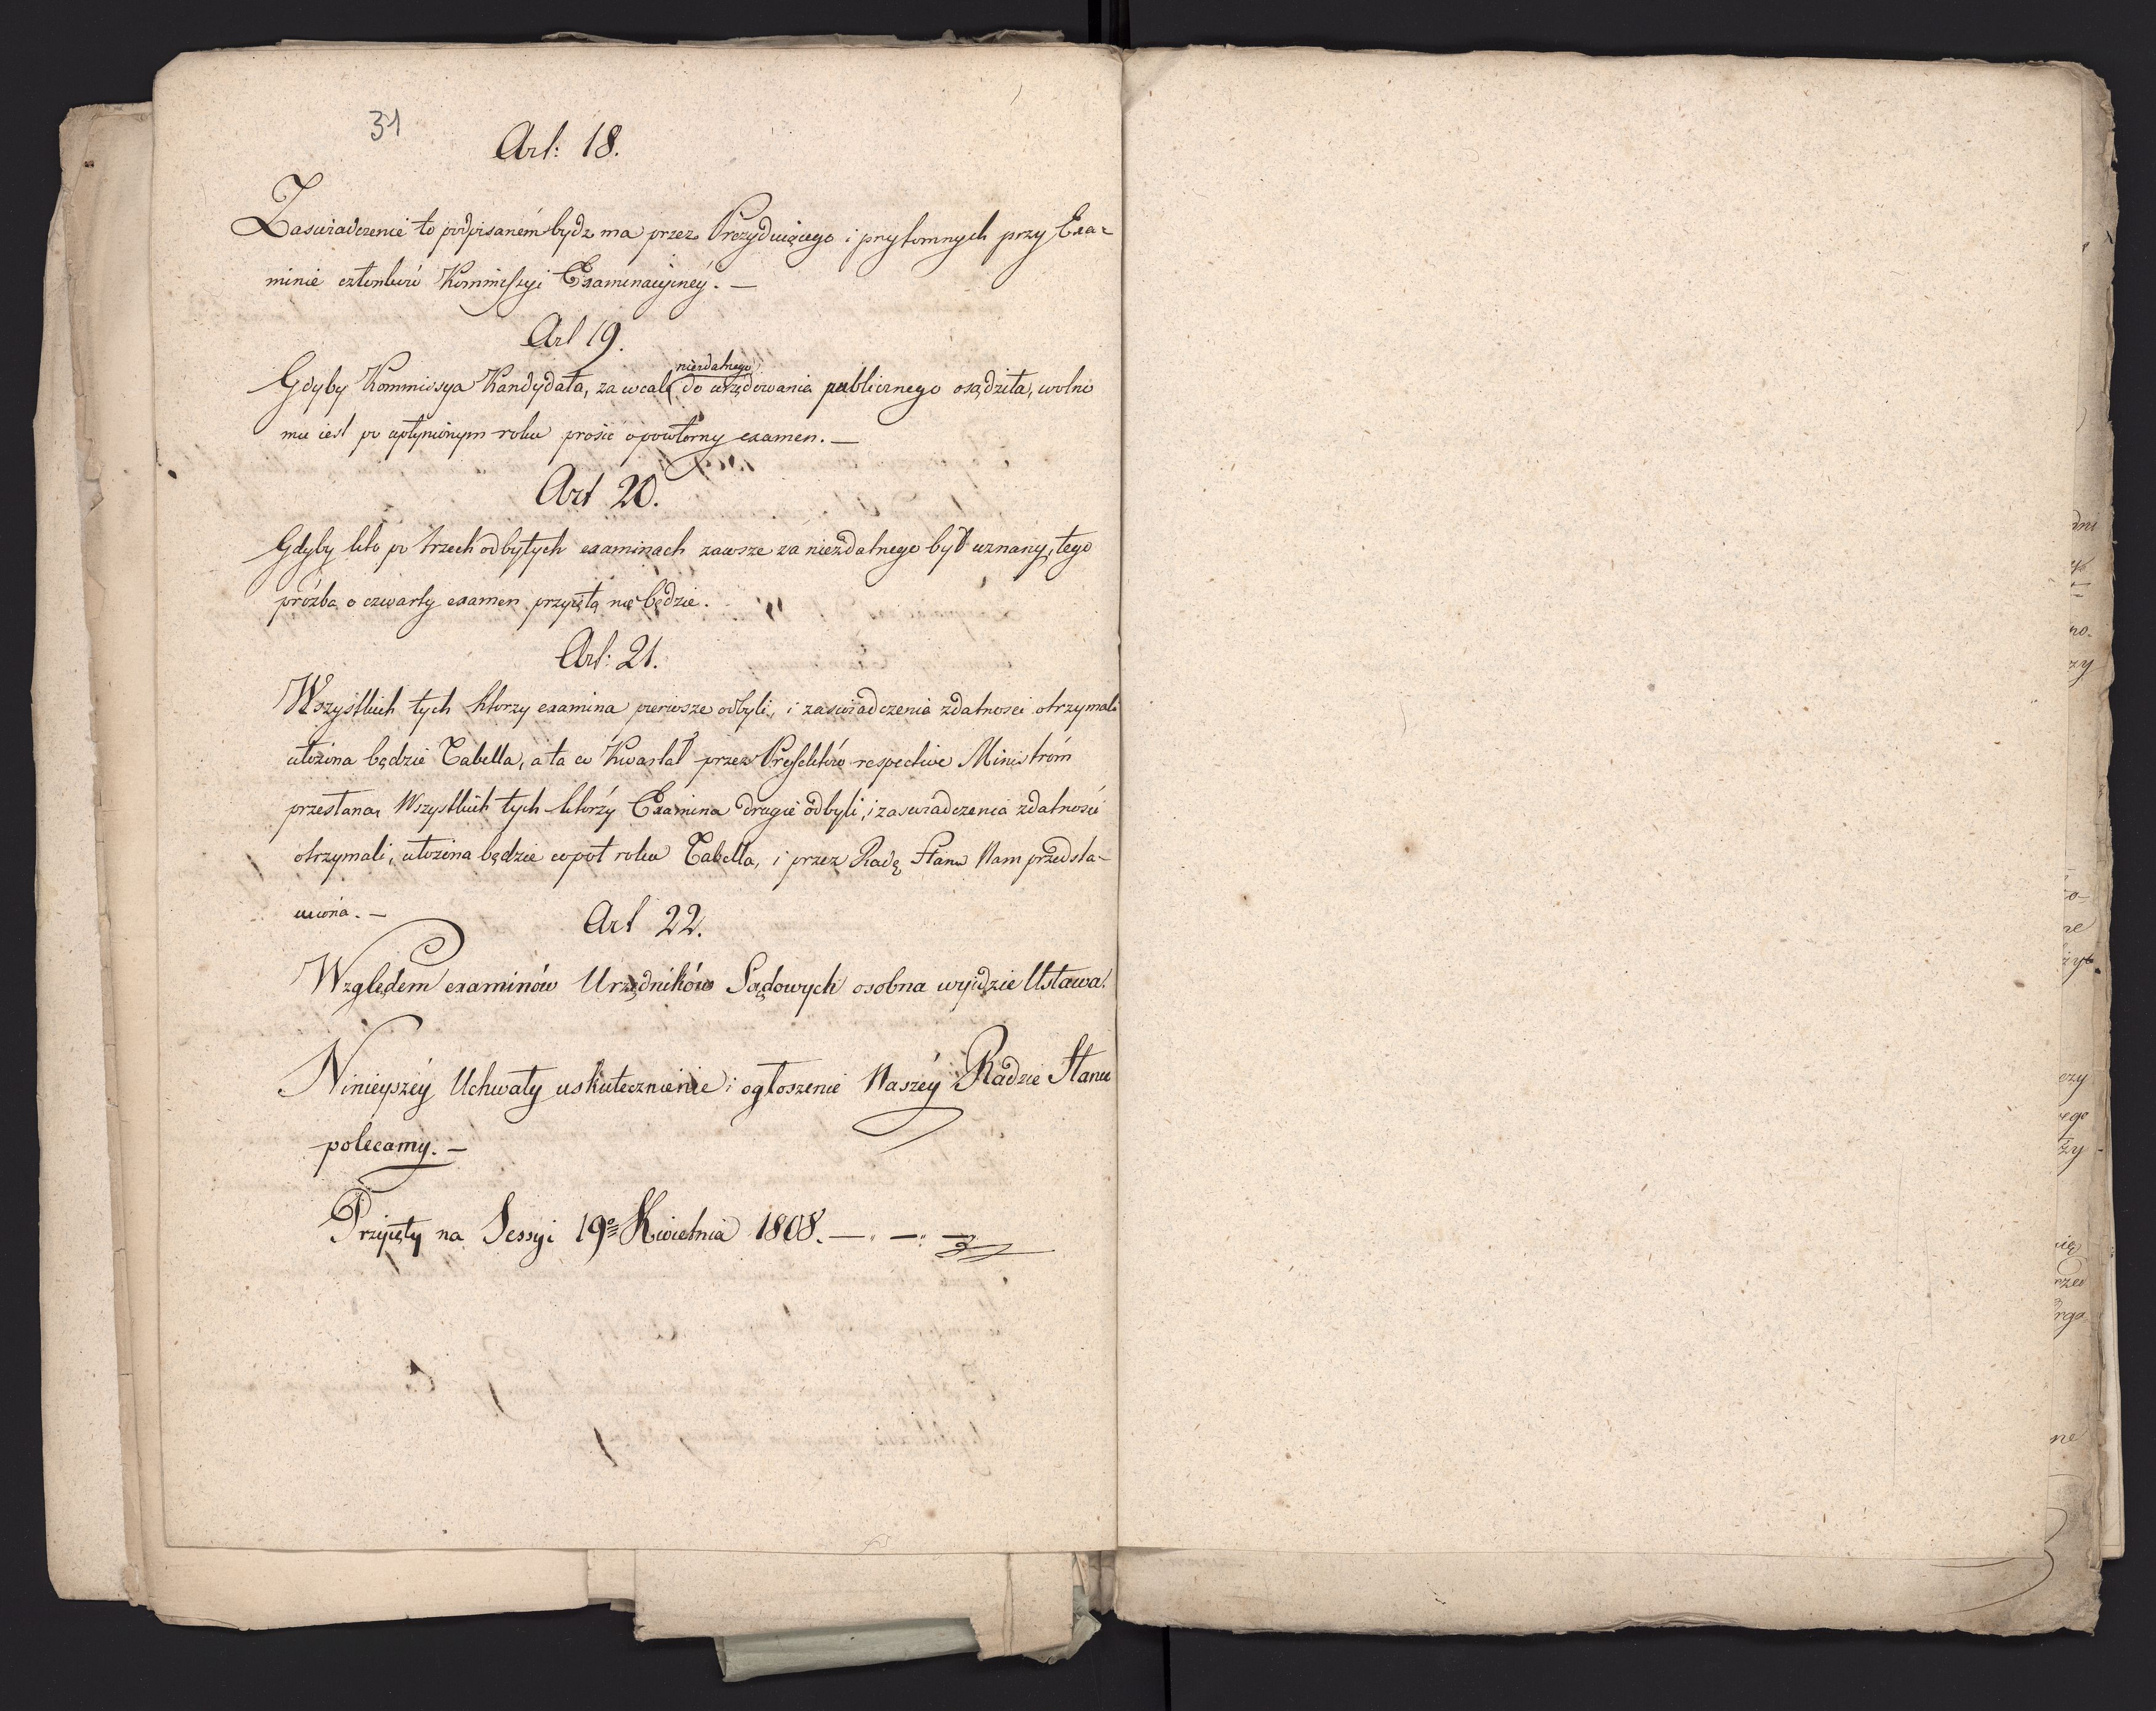 31
Art: 18.
Zaswiadczenie to podpisaném bydz ma przez Prezyduiącego i przytomnych przy Exa-
minie członków Kommissyi Examinacyinéy. —
Art 19.
Gdyby Kommissya Kandydata, za wcale niezdatnego do urzędowania publicznego osądziła, wolno
mu iest po upłynionym roku prosic o powtorny examen. —
Art 20.
Gdyby kto po trzech odbytych examinach zawsze za niezdatnego był uznany, tego
prózba o czwarty examen przyięta nie będzie.
Art: 21.
Wszystkich tych ktorzy examina pierwsze odbyli, i zaswiadczenia zdatnosci otrzymali
ułożona będzie Tabella, a ta co Kwartał przez Prefektów respective Ministróm
przesłana, Wszystkich tych którzy Examina drugie odbyli, i zaswiadczenia zdatności
otrzymali, ułożona będzie co pół roku Tabella, i przez Radę Stanu Nam przedsta-
wiona. —
Art 22.
Względem examinów Urzędników Sądowych osobna wyidzie Ustawa.
Ninieyszéy Uchwały uskutecznienie i ogłoszenie Naszéy Radzie Stanu
polecamy. —
Przyięty na Sessyi 19º Kwietnia 1808. — „ — „ —